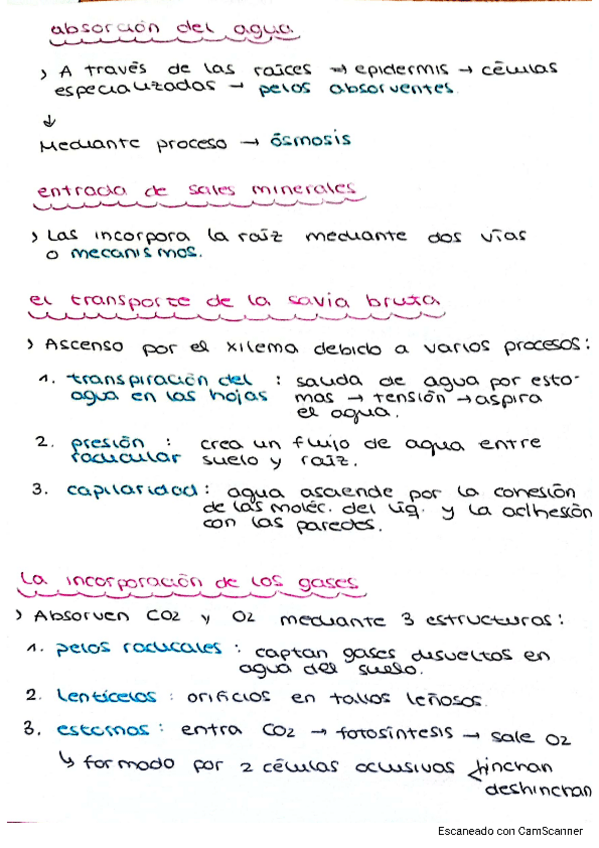 absorción del agua
> A través de las raíces → epidermis → células
especializadas → pelos absorventes.
↓
Mediante proceso → ósmosis
entrada de sales minerales
> Las incorpora la raíz mediante dos vías
o mecanismos.
el transporte de la savia bruta
> Ascenso por el xilema debido a varios procesos:
1. transpiración del : salida de agua por esto-
agua en las hojas mas → tensión → aspira
el agua.
2. presión : crea un flujo de agua entre
radicular suelo y raíz.
3. capilaridad : agua asciende por la cohesión
de las moléc. del líq. y la adhesión
con las paredes.
la incorporación de los gases
> Absorven CO2 y O2 mediante 3 estructuras:
1. pelos radicales : captan gases disueltos en
agua del suelo.
2. lenticelos : orificios en tallos leñosos.
3. estomas : entra CO2 → fotosíntesis → sale O2
↳ formado por 2 células oclusivas hinchan
deshinchan
Escaneado con CamScanner